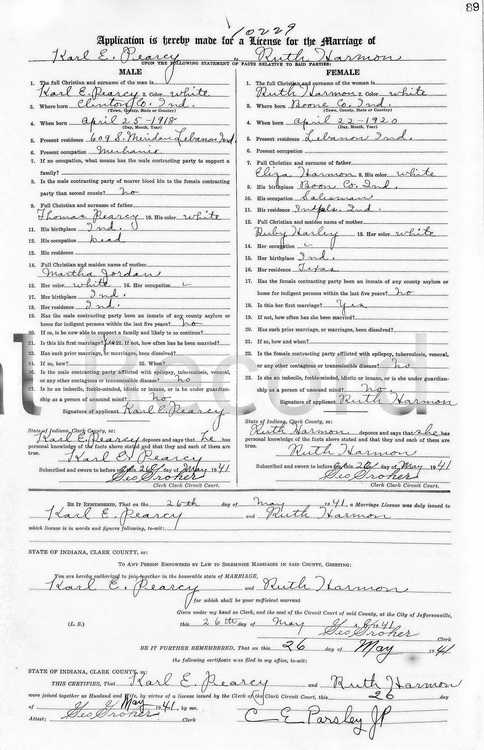 89
10229
Application is hereby made for a License for the Marriage of
Karl E. Pearcy to Ruth Harmon
UPON THE FOLLOWING STATEMENT OF FACTS RELATIVE TO SAID PARTIES:
MALE
1. The full Christian and surname of the man is
Karl E. Pearcy 2. Color white
3. Where born Clinton Co. Ind.
(Town, County, State or Country)
4. When born April 25-1918
(Day, Month, Year)
5. Present residence 609 S. Meridan Lebanon Ind.
6. Present occupation Mechanic
7. If no occupation, what means has the male contracting party to support a
family?
8. Is the male contracting party of nearer blood kin to the female contracting
party than second cousin? No
9. Full Christian and surname of father
Thomas Pearcy 10. His color white
11. His birthplace Ind.
12. His occupation Dead
13. His residence
14. Full Christian and maiden name of mother
Martha Jordan
15. Her color white 16. Her occupation
17. Her birthplace Ind.
18. Her residence Ind.
19. Has the male contracting party been an inmate of any county asylum or
home for indigent persons within the last five years? No
20. If so, is he now able to support a family and likely to so continue?
21. Is this his first marriage? Yes 22. If not, how often has he been married?
23. Has such prior marriage, or marriages, been dissolved?
24. If so, how? 22. When?
24. Is the male contracting party afflicted with epilepsy, tuberculosis, venereal,
or any other contagious or transmissible disease? No
25. Is he an imbecile, feeble-minded, idiotic or insane, or is he under guardian-
ship as a person of unsound mind? No
Signature of applicant Karl E. Pearcy
State of Indiana, Clark County, ss:
Karl E. Pearcy deposes and says that he has
personal knowledge of the facts above stated and that they and each of them are
true.
Karl E. Pearcy
Subscribed and sworn to before me this 26 day of May 1941
Geo Groher
Clerk Clark Circuit Court.
FEMALE
1. The full Christian and surname of the woman is
Ruth Harmon 2. Color white
3. Where born Boone Co. Ind.
(Town, County, State or Country)
4. When born April 22-1920
(Day, Month, Year)
5. Present residence Lebanon Ind.
6. Present occupation
7. Full Christian and surname of father
Harmon 8. His color white
9. His birthplace Boon Co. Ind.
10. His occupation Salesman
11. His residence Indpls. Ind.
12. Full Christian and maiden name of mother
Ruby Harley 13. Her color white
14. Her occupation
15. Her birthplace Ind.
16. Her residence Texas
17. Has the female contracting party been an inmate of any county asylum or
home for indigent persons within the last five years? No
18. Is this her first marriage? Yes
19. If not, how often has she been married?
20. Has such prior marriage, or marriages, been dissolved?
21. If so, how and when?
22. Is the female contracting party afflicted with epilepsy, tuberculosis, venereal,
or any other contagious or transmissible disease? No
23. Is she an imbecile, feeble-minded, idiotic or insane, or is she under guardian-
ship as a person of unsound mind? No
Signature of applicant Ruth Harmon
State of Indiana, Clark County, ss:
Ruth Harmon deposes and says that she has
personal knowledge of the facts above stated and that they and each of them are
true.
Ruth Harmon
Subscribed and sworn to before me this 26 day of May 1941
Geo Groher
Clerk Clark Circuit Court.
BE IT REMEMBERED, That on the 26th day of May 1941, a Marriage License was duly issued to
Karl E. Pearcy and Ruth Harmon
which license is in words and figures following, to-wit:
STATE OF INDIANA, CLARK COUNTY, ss:
TO ANY PERSON EMPOWERED BY LAW TO SOLEMNIZE MARRIAGES IN SAID COUNTY, GREETING:
You are hereby authorized to join together in the honorable state of MARRIAGE,
Karl E. Pearcy and Ruth Harmon
for which shall be your sufficient warrant
Given under my hand as Clerk, and the seal of the Circuit Court of said County, at the City of Jeffersonville,
(L. S.) this 26th day of May 1941
Geo Groher Clerk
BE IT FURTHER REMEMBERED, That on this 26 day of May 1941
the following certificate was filed in my office, to-wit:
STATE OF INDIANA, CLARK COUNTY, ss:
THIS CERTIFIES, That Karl E. Pearcy and Ruth Harmon
were joined together as Husband and Wife, by virtue of a license issued by the Clerk of the Clark Circuit Court, this 26 day
of May 1941, by me.
Attest: Geo Groher Clerk C E Parsley JP